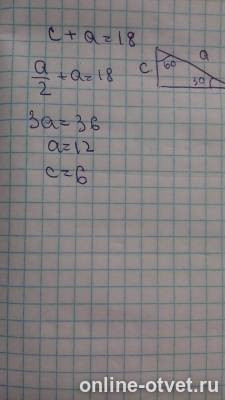 c + a = 18
a/2 + a = 18
3a = 36
a = 12
c = 6
c
a
60
30
online-otvet.ru